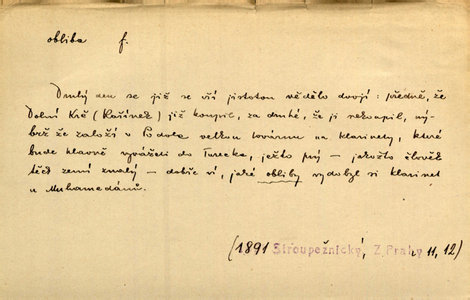 obliba f.
Druhý den se již se vší jistotou vědělo dvojí: předně, že
Dolní Krč (Košínek) již koupil, za druhé, že ji nekoupil, ný-
brž že založí v Podole velkou továrnu na klarinety, které
bude hlavně vyvážeti do Turecka, ježto prý – jakožto člověk
těch zemí znalý – dobře ví, jaké obliby vydobyl si klarinet
u Muhamedánů.
(1891 Stroupežnický, Z Prahy 11, 12)